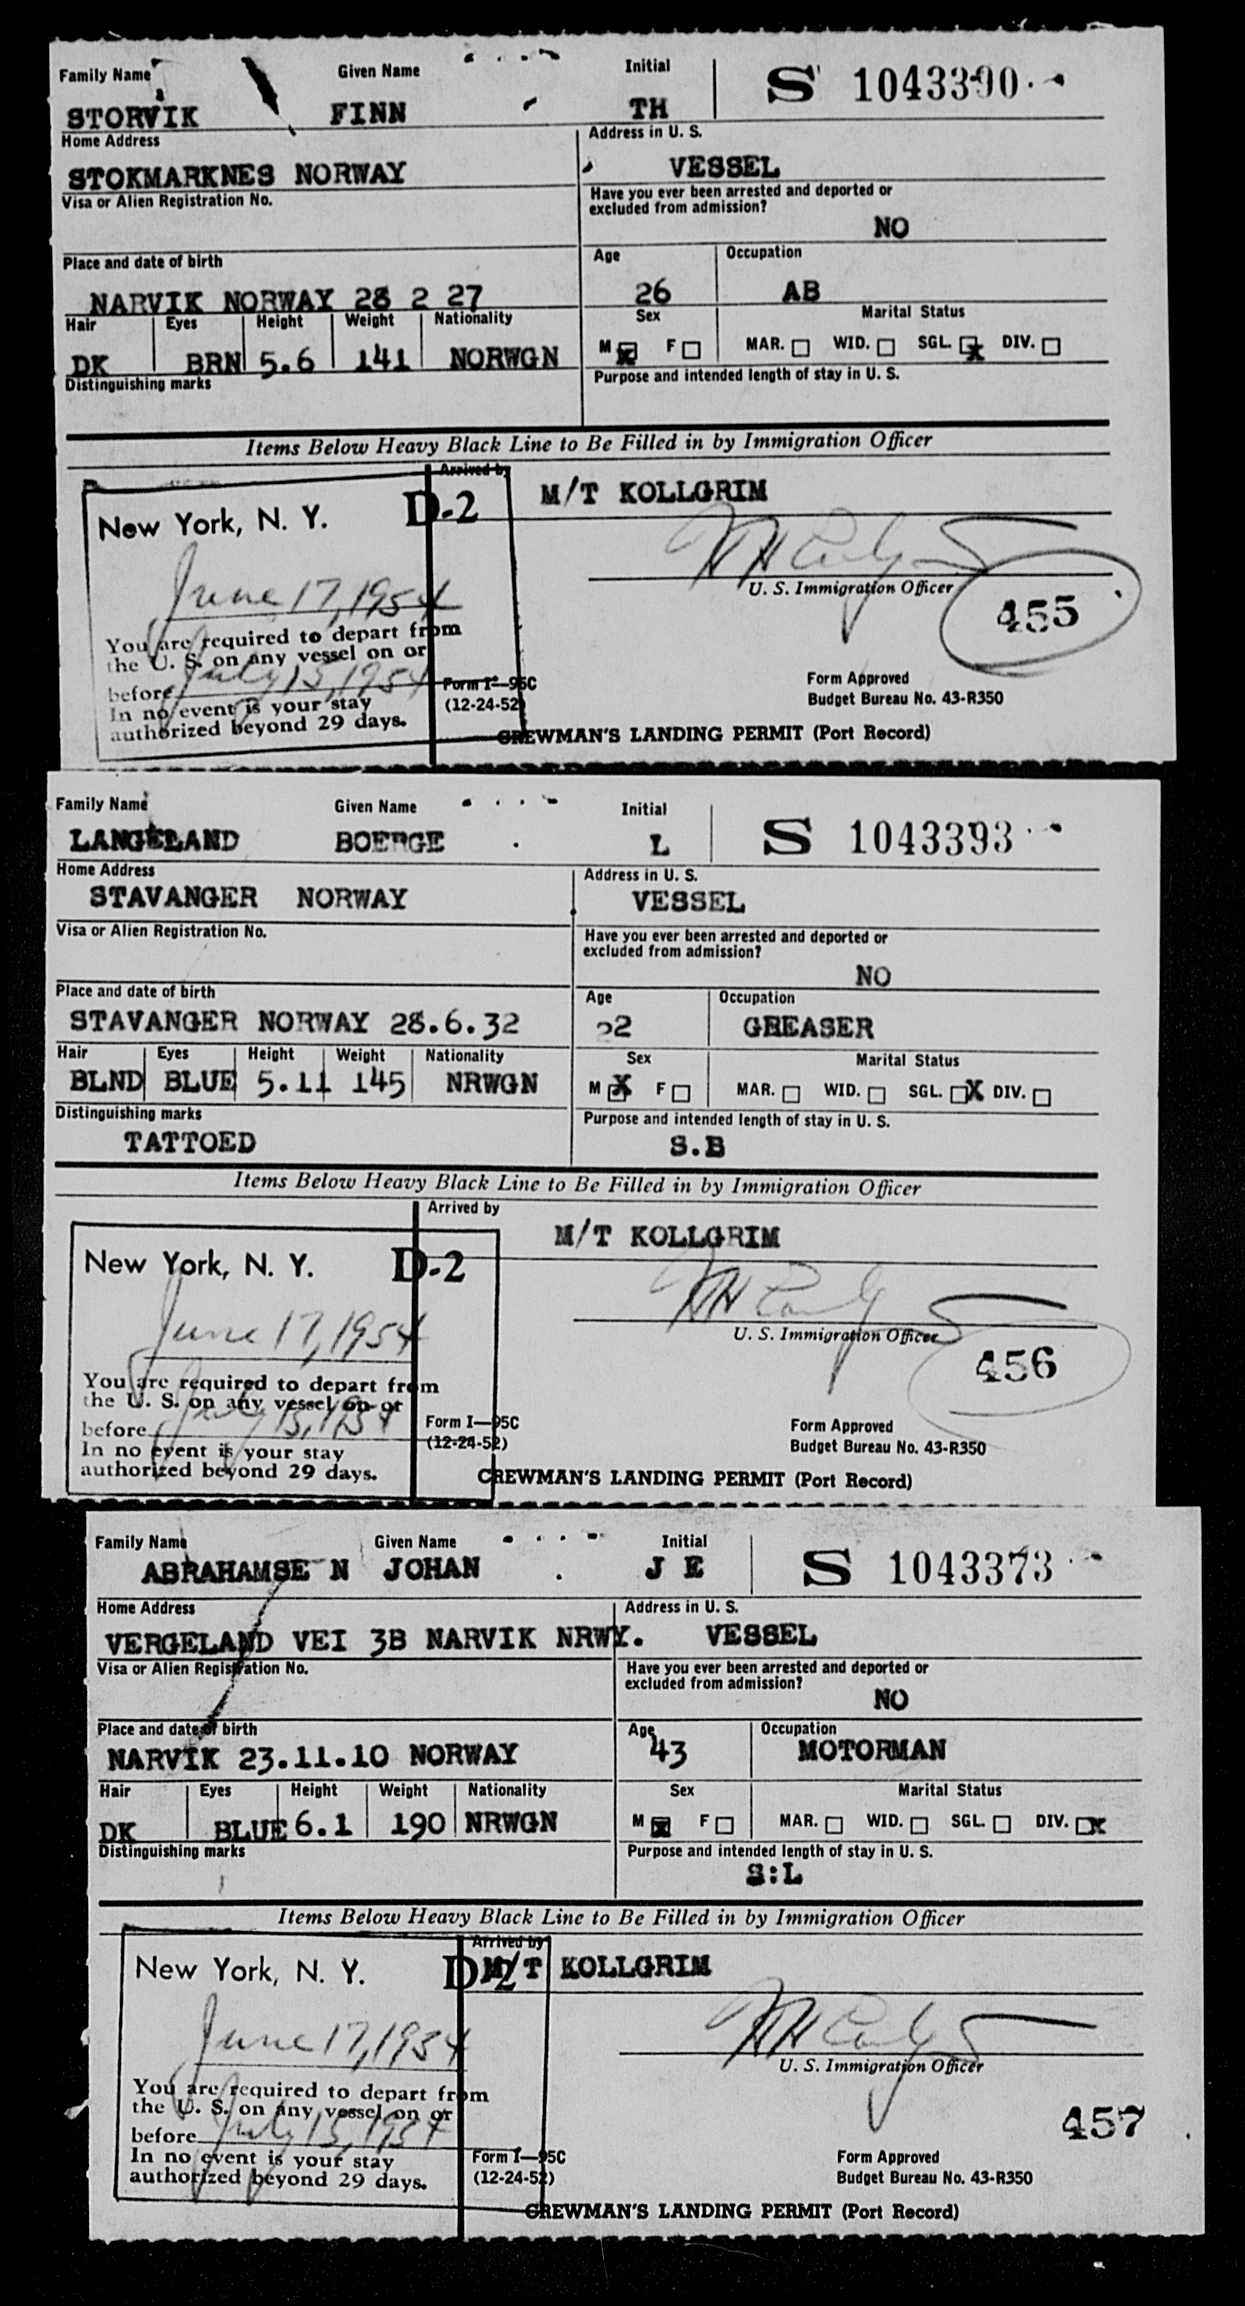 Family Name Given Name Initial S 1043390
STORVIK FINN TH
Home Address Address in U. S.
STOKMARKNES NORWAY VESSEL
Visa or Alien Registration No. Have you ever been arrested and deported or
excluded from admission?
NO
Place and date of birth Age Occupation
NARVIK NORWAY 28 2 27 26 AB
Hair Eyes Height Weight Nationality Sex Marital Status
DK BRN 5.6 141 NORWGN M X F MAR. WID. SGL. X DIV.
Distinguishing marks Purpose and intended length of stay in U. S.
Items Below Heavy Black Line to Be Filled in by Immigration Officer
Arrived by
New York, N. Y. D-2 M/T KOLLGRIM
June 17, 1954
U. S. Immigration Officer
455
You are required to depart from
the U. S. on any vessel on or
before July 15, 1954
In no event is your stay
authorized beyond 29 days.
Form I-95C
(12-24-52)
Form Approved
Budget Bureau No. 43-R350
CREWMAN'S LANDING PERMIT (Port Record)
Family Name Given Name Initial S 1043393
LANGELAND BOERGE L
Home Address Address in U. S.
STAVANGER NORWAY VESSEL
Visa or Alien Registration No. Have you ever been arrested and deported or
excluded from admission?
NO
Place and date of birth Age Occupation
STAVANGER NORWAY 28.6.32 22 GREASER
Hair Eyes Height Weight Nationality Sex Marital Status
BLND BLUE 5.11 145 NRWGN M X F MAR. WID. SGL. X DIV.
Distinguishing marks Purpose and intended length of stay in U. S.
TATTOED S.B
Items Below Heavy Black Line to Be Filled in by Immigration Officer
Arrived by
New York, N. Y. D-2 M/T KOLLGRIM
June 17, 1954
U. S. Immigration Officer
456
You are required to depart from
the U. S. on any vessel on or
before July 15, 1954
In no event is your stay
authorized beyond 29 days.
Form I-95C
(12-24-52)
Form Approved
Budget Bureau No. 43-R350
CREWMAN'S LANDING PERMIT (Port Record)
Family Name Given Name Initial S 1043373
ABRAHAMSE N JOHAN J E
Home Address Address in U. S.
VERGELAND VEI 3B NARVIK NRWY. VESSEL
Visa or Alien Registration No. Have you ever been arrested and deported or
excluded from admission?
NO
Place and date of birth Age Occupation
NARVIK 23.11.10 NORWAY 43 MOTORMAN
Hair Eyes Height Weight Nationality Sex Marital Status
DK BLUE 6.1 190 NRWGN M X F MAR. WID. SGL. DIV. X
Distinguishing marks Purpose and intended length of stay in U. S.
S:L
Items Below Heavy Black Line to Be Filled in by Immigration Officer
Arrived by
New York, N. Y. D-2 M/T KOLLGRIM
June 17, 1954
U. S. Immigration Officer
457
You are required to depart from
the U. S. on any vessel on or
before July 15, 1954
In no event is your stay
authorized beyond 29 days.
Form I-95C
(12-24-52)
Form Approved
Budget Bureau No. 43-R350
CREWMAN'S LANDING PERMIT (Port Record)